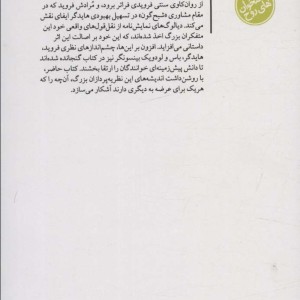 از روان‌کاوی سنتی فرویدی فراتر برود، و مُرادش فروید که در
مقام مشاوری «شبح‌گونه» در تسهیل بهبودی هایدگر ایفای نقش
می‌کند. دیالوگ‌های نمایش‌نامه از نقل‌قول‌های واقعی خود این
متفکران بزرگ اخذ شده‌اند، که این خود بر اصالت این اثر
داستانی می‌افزاید. افزون بر این‌ها، چشم‌اندازهای نظری فروید،
هایدگر، باس و لودویک بینسونگر نیز در کتاب گنجانده شده‌اند
تا دانش پیش‌زمینه‌ای خوانندگان را ارتقا ببخشند. کتاب حاضر،
با روشن‌داشت اندیشه‌های این نظریه‌پردازان بزرگ، آن‌چه را که
هریک برای عرضه به دیگری دارند آشکار می‌سازد.
های روح